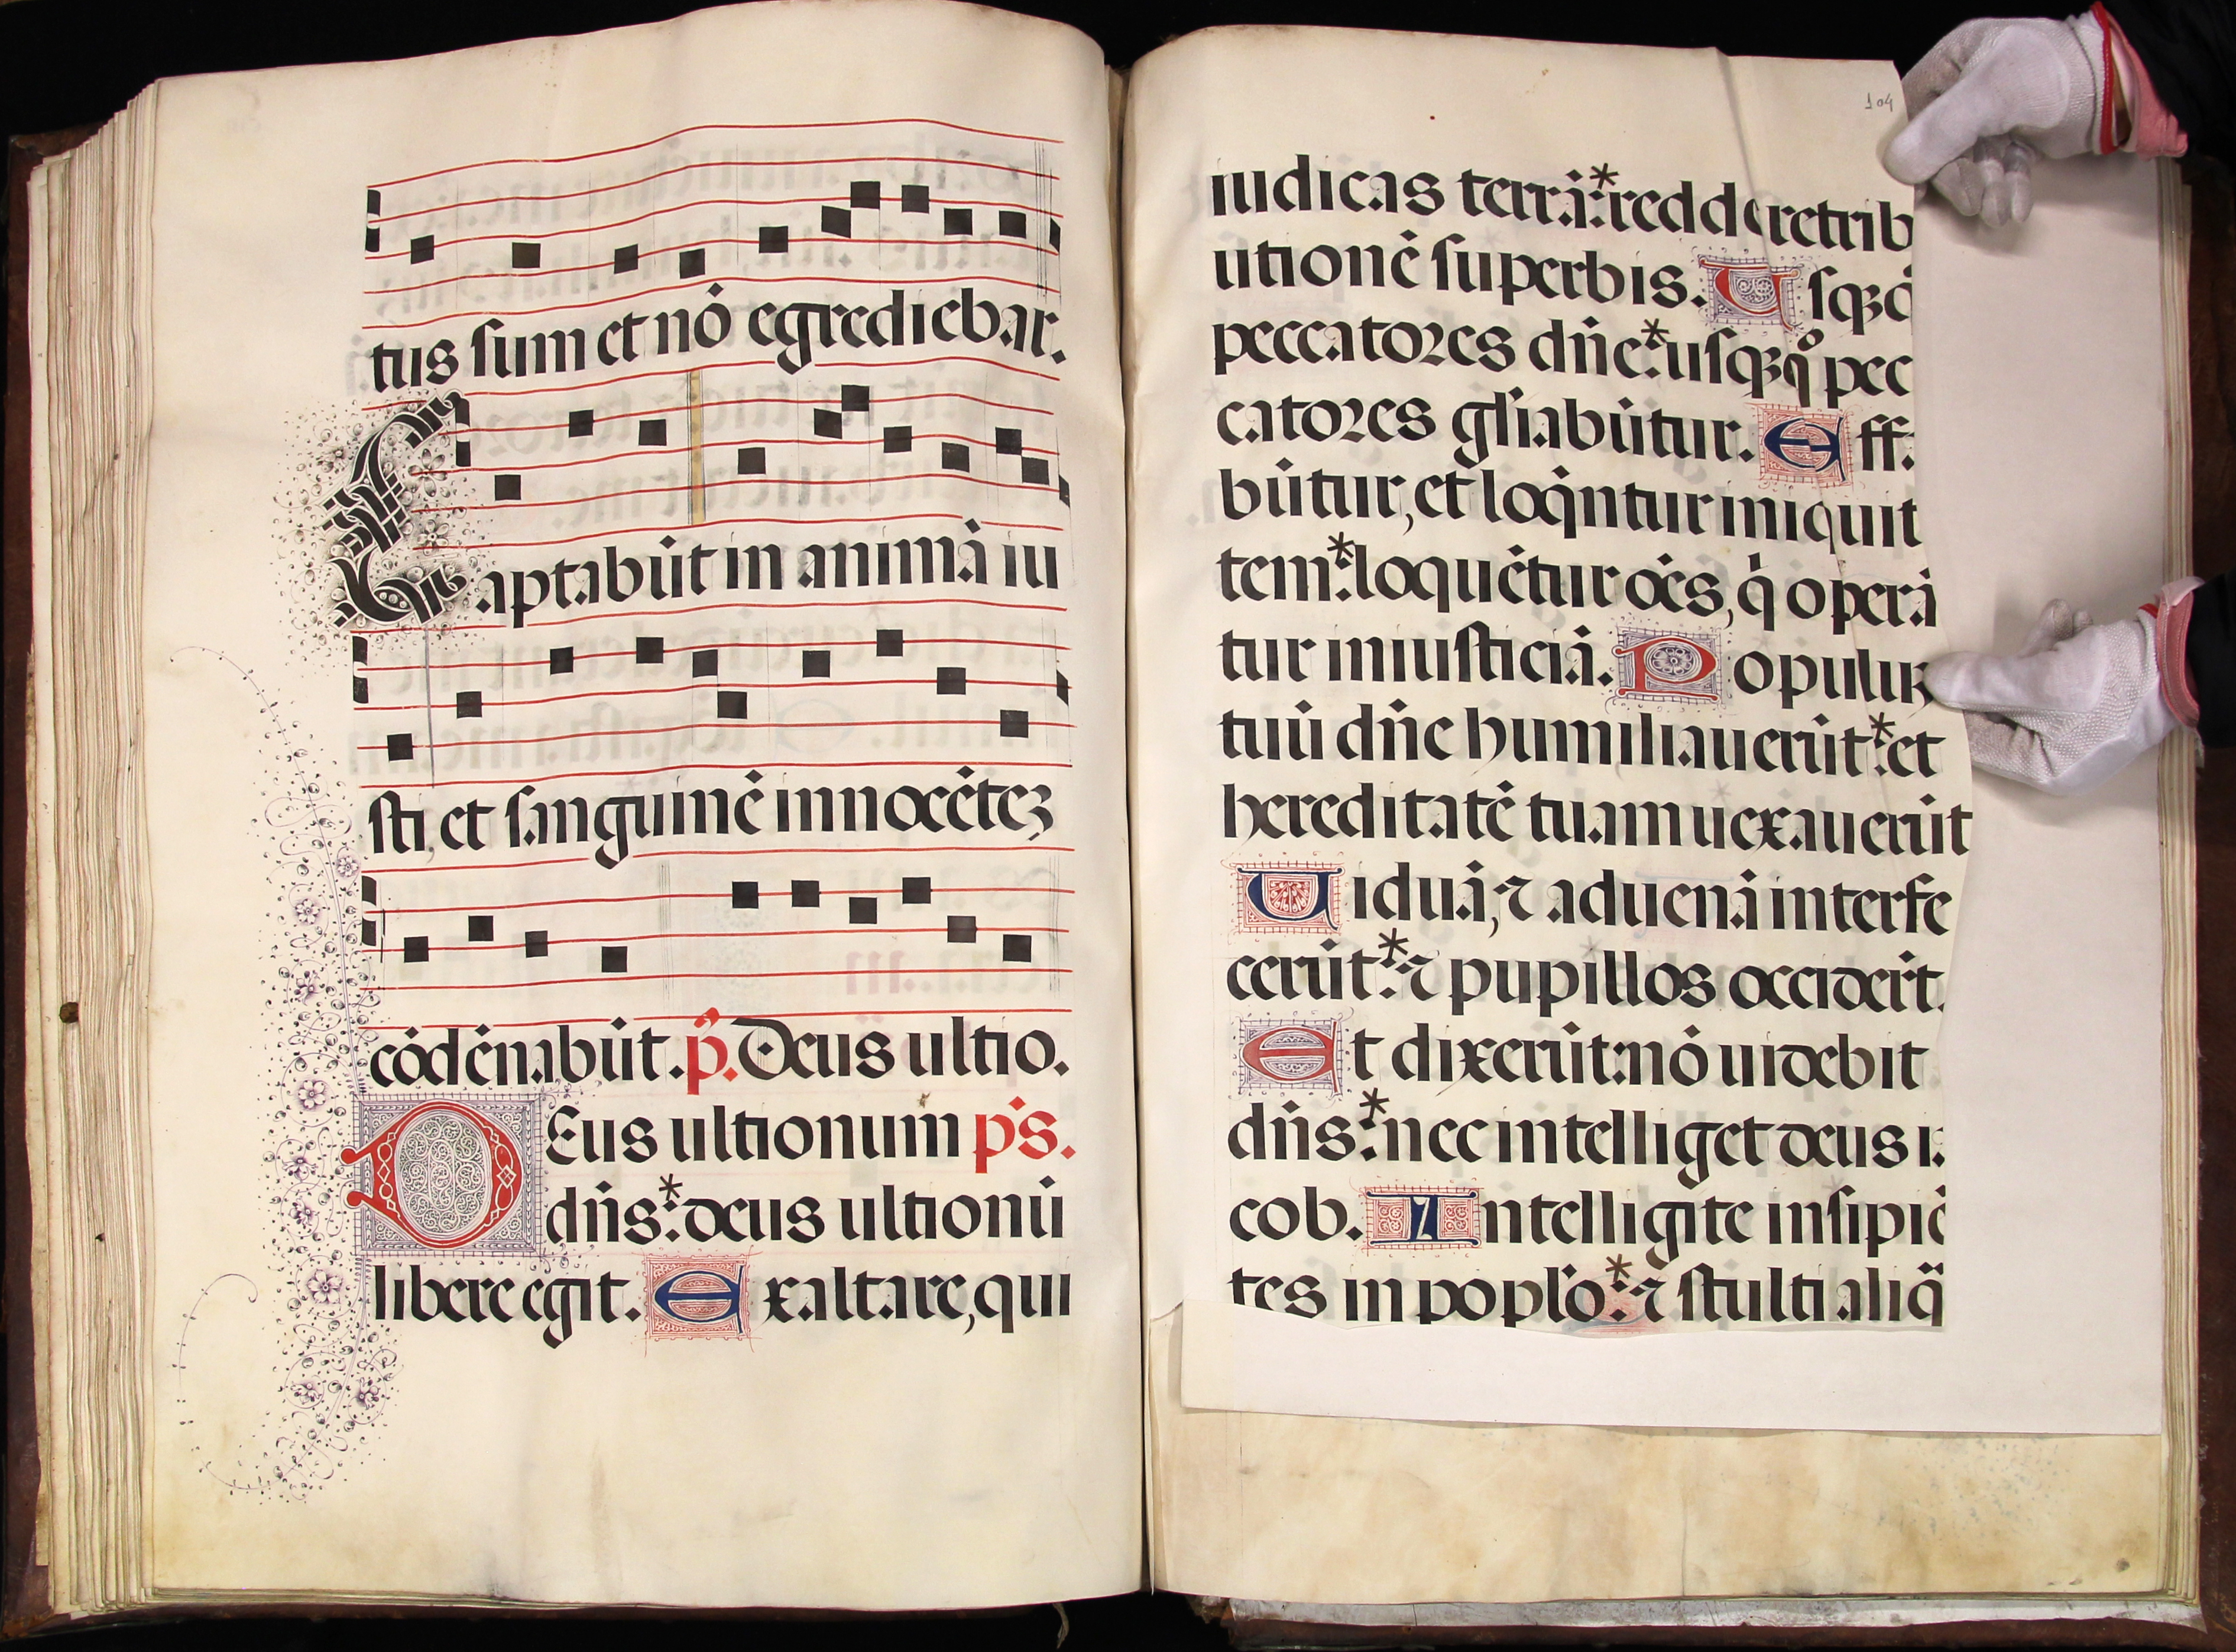 tus sum et nō egrediebar.
Captabūt in animā iu
sti, et sanguinē innocētez
cōdēnabūt. p̄. Deus ultio.
DEus ultionum ps.
dn̄s:* deus ultionū
libere egit. Exaltare, qui
104
iudicas terrā:* redde retrib
utionē superbis. Usqꝫ
peccatores dn̄e:* usqꝫqͦ pec
catores gl̄iabūtur. Eff.
būtur, et loqn̄tur iniquit
tem:* loquētur oēs, q̇ operā
tur iniusticiā. Populū
tuū dn̄e humiliauerūt:* et
hereditatē tuam uexauerūt
Uiduā, ⁊ aduenā interfe
cerūt:* ⁊ pupillos occidert̄.
Et dixerūt: nō uidebit
dn̄s:* nec intelliget deus i.
cob. Intelligite insipiē
tes in poplo:* ⁊ stulti aliq̄